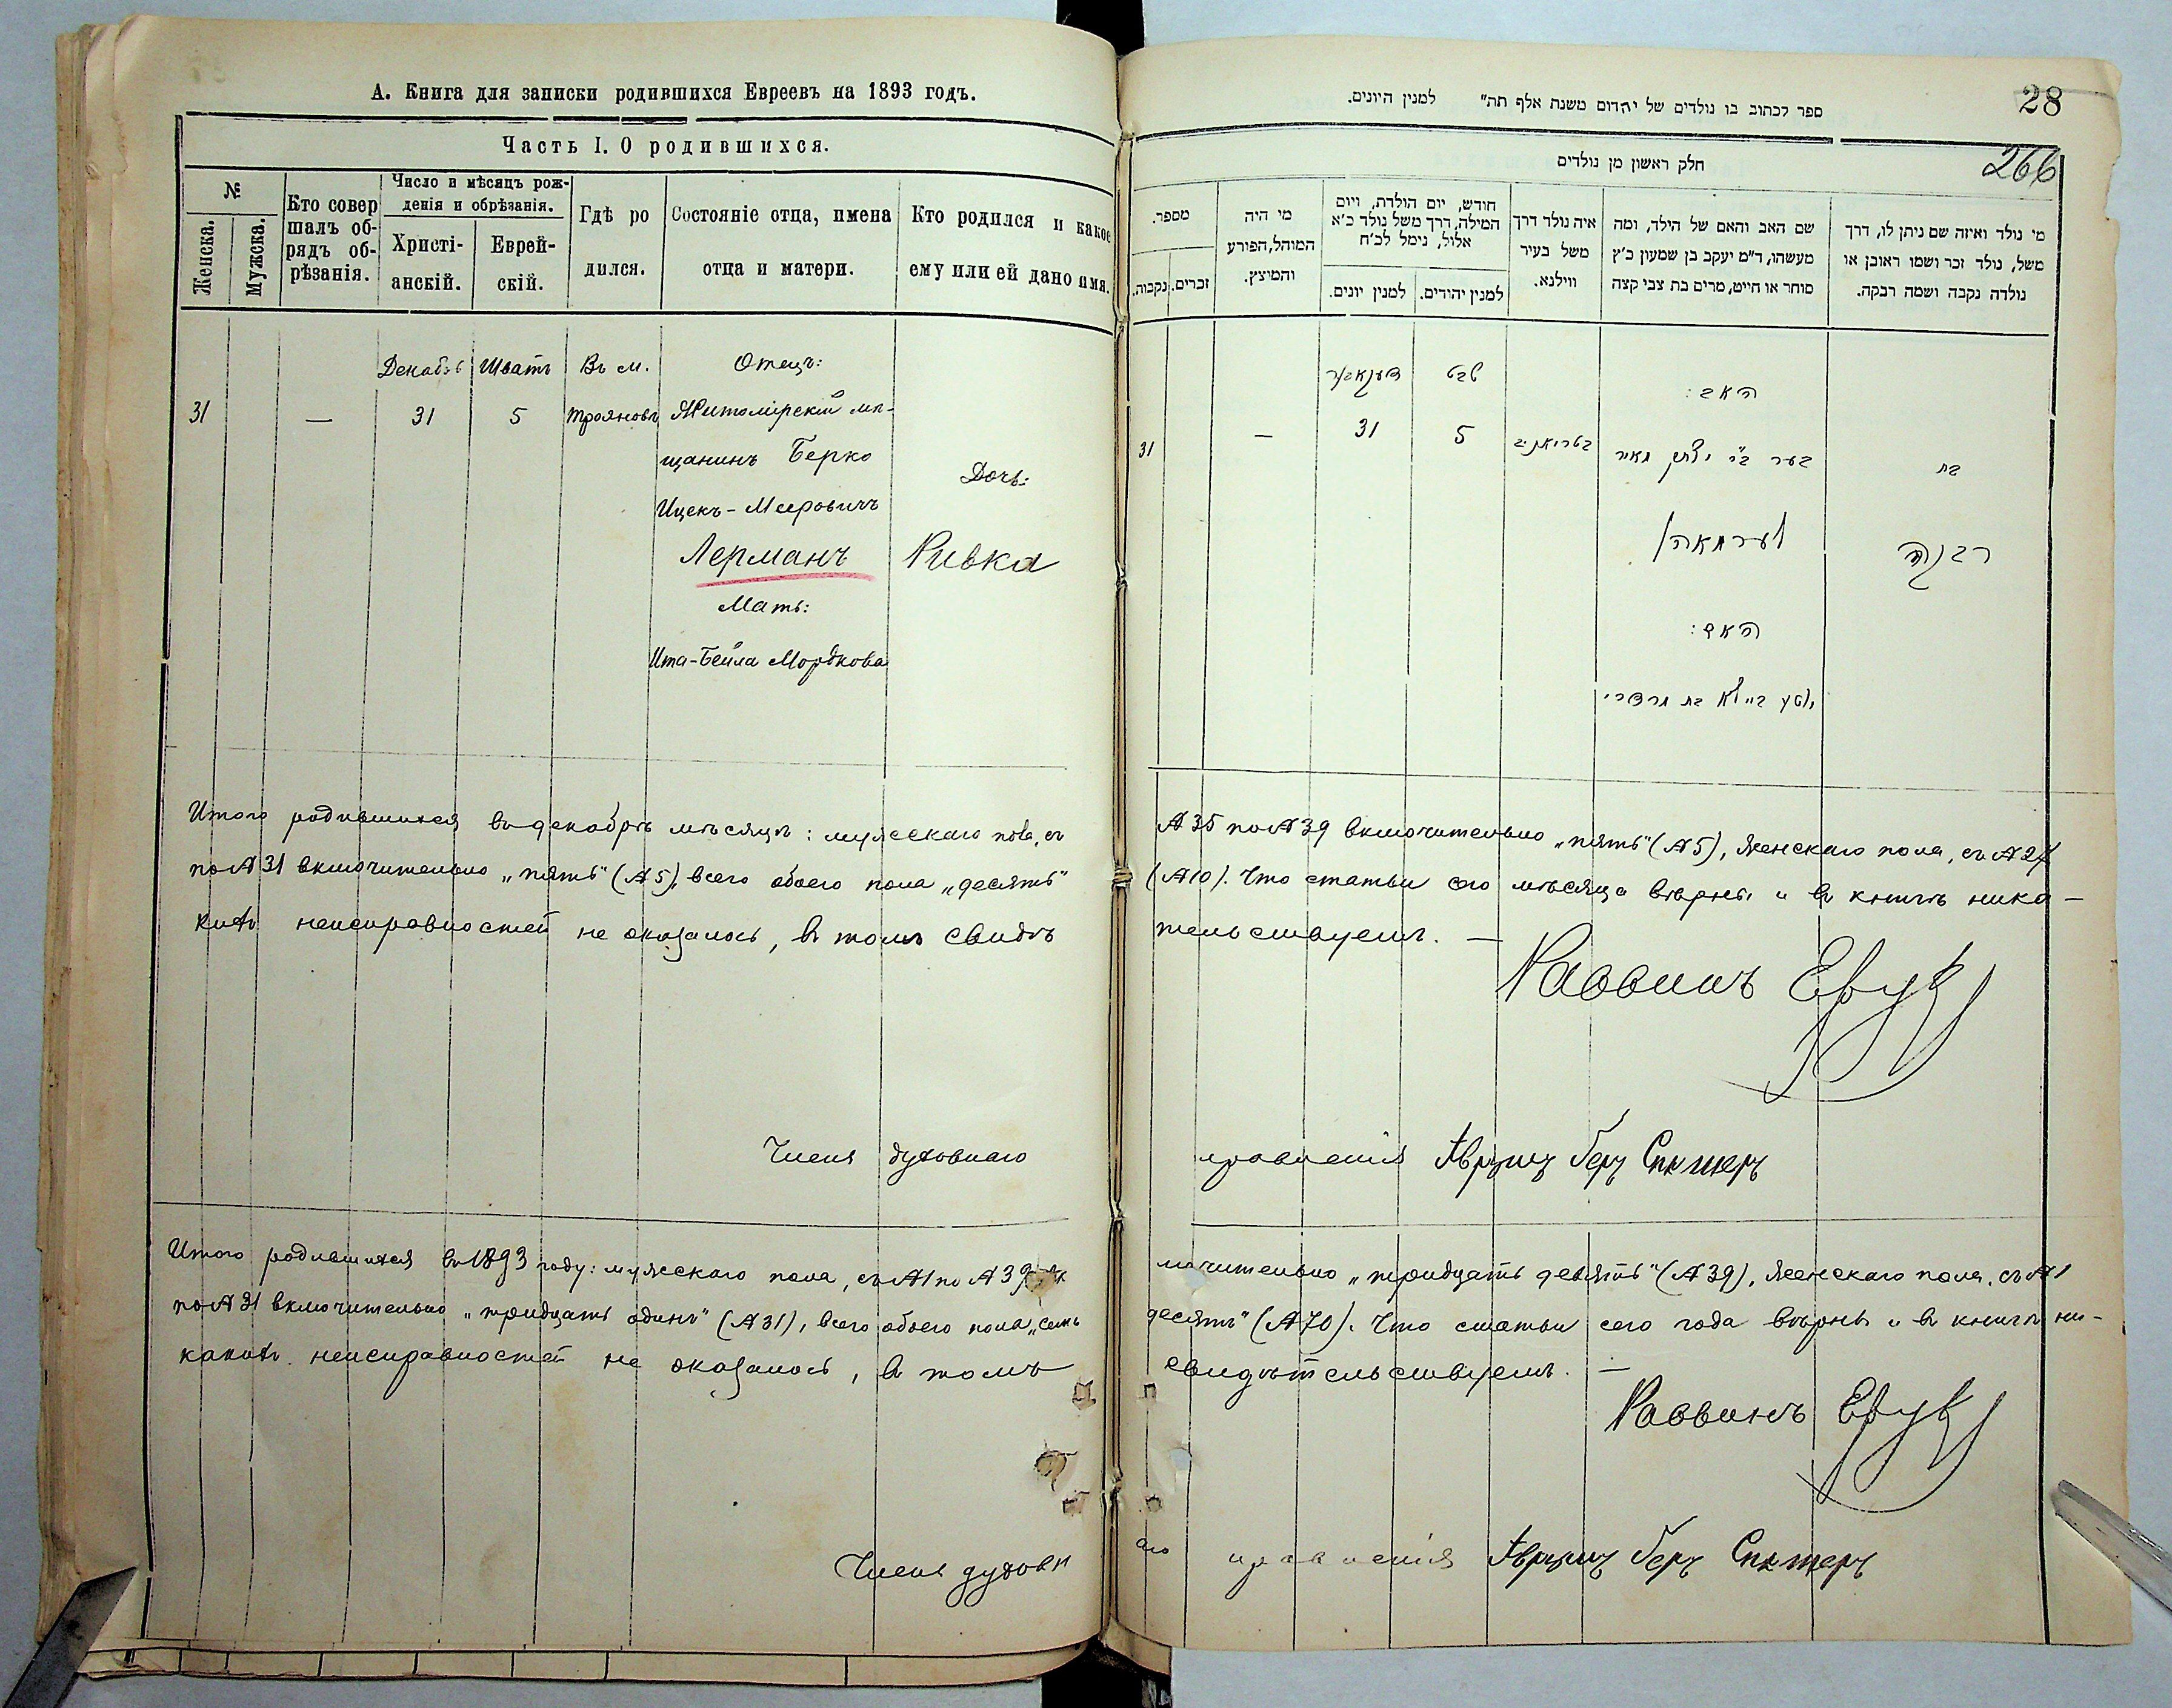 А. Книга для записки родившихся Евреевъ на 1893 годъ.
Часть I. О родившихся.
№
Женска.
Мужска.
Кто совер
шалъ об-
рядъ об-
рѣзанія.
Число и мѣсяцъ рож-
денія и обрѣзанія.
Христі-
анскій.
Еврей-
скій.
Гдѣ ро
дился.
Состояніе отца, имена
отца и матери.
Кто родился и какое
ему или ей дано имя.
31
—
Декабрь
31
Шватъ
5
Въ м.
Трояновъ
Отецъ:
Житомірскій мѣ-
щанинъ Берко
Ицекъ-Мееровичъ
Лерманъ
Мать:
Ита-Бейла Мордкова
Дочь:
Ривка
Итого родившихся въ декабрѣ мѣсяцѣ: мужескаго пола, съ
по №31 включительно „пять" (№5), всего обоего пола „десять"
кихъ неисправностей не оказалось, въ томъ свидѣ
Членъ духовнаго
Итого родившихся въ 1893 году: мужескаго пола, съ №1 по №39
по №31 включительно „тридцать одинъ" (№31), всего обоего пола „семь
какихъ неисправностей не оказалось, въ томъ
Членъ духовн
28
266
ספר לכתוב בו נולדים של יהדום משנת אלף תת" למנין היונים.
חלק ראשון מן נולדים
מספר.
נקבות.
זכרים.
מי היה
המוהל, הפורע
והמיצץ.
חודש, יום הולדת, ויום
המילה, דרך משל נולד כ'א
אלול, נימל לכ'ח
למנין יונים.
למנין יהודים.
איה נולד דרך
משל בעיר
ווילנא.
שם האב והאם של הילד, ומה
מעשהו, ד"מ יעקב בן שמעון כ'ץ
סוחר או חייט, מרים בת צבי קצה
מי נולד ואיזה שם ניתן לו, דרך
משל, נולד זכר ושמו ראובן או
נולדה נקבה ושמה רבקה.
31
—
דעקאבער
31
שבט
5
האב:
בער ב"ר יצחק מאיר
לערמאן
האם:
איטע ביילא בת מרדכי
בת
רבקה
№35 по №39 включительно „пять" (№5), женскаго пола, съ №27
(№10). Что статьи сего мѣсяца вѣрны и въ книгѣ ника-
тельствуемъ. —
Раввинъ
правленія Аврумъ Беръ
лючительно „тридцать девять" (№39), женскаго пола, съ №1
десять" (№70). Что статьи сего года вѣрны и въ книгѣ ни-
свидѣтельствуемъ. —
Раввинъ
аго правленія Аврумъ Беръ